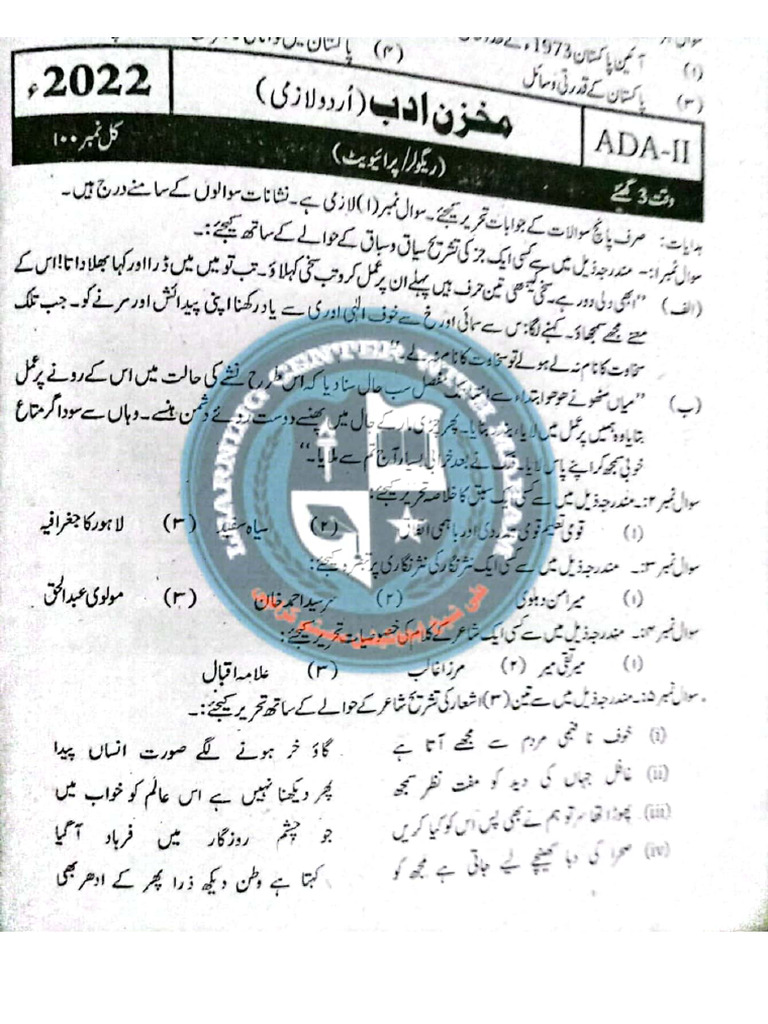 (۱) آئین پاکستان 1973ء کے
(۳) پاکستان کے قدرتی وسائل (۴) پاکستان میں
ADA-II مخزن ادب (اُردو لازمی) 2022ء
وقت 3 گھنٹے (ریگولر/پرائیویٹ) کل نمبر ۱۰۰
ہدایات: صرف پانچ سوالات کے جوابات تحریر کیجئے۔ سوال نمبر (۱) لازمی ہے۔ نشانات سوالوں کے سامنے درج ہیں۔
سوال نمبر۱:۔ مندرجہ ذیل میں سے کسی ایک جز کی تشریح سیاق و سباق کے حوالے کے ساتھ کیجئے:۔
(الف) "ابھی دلی دور ہے۔ سخی کیتیں تین حرف ہیں پہلے ان پر عمل کرو تب سخی کہلاؤ۔ تب تو میں میں ڈرا اور کہا بھلا داتا! اس کے
معنے مجھے سمجھاؤ۔ کہنے لگا: س سے سمائی اور خ سے خوف الٰہی اور ی سے یاد رکھنا اپنی پیدائش اور مرنے کو۔ جب تلک
سخاوت کا نام نہ لے
(ب) "میاں مٹھو نے جو جو ابتدا سے مفصل سب حال سنا دیا کہ اس طرح نشے کی حالت میں اس کے رونے پر عمل
بتایا وہ ہمیں پر عمل میں لایا، بندر بنایا۔ پھر چڑی مار کے جال میں پھنسے دوست روئے دشمن ہنسے۔ وہاں سے سوداگر متاع
خوبی سمجھ کر اپنے پاس لایا۔ فلک نے بعد خرابی بسیار آج تم سے ملایا۔"
سوال نمبر۲:۔ مندرجہ ذیل میں سے کسی ایک سبق کا خلاصہ تحریر کیجئے:
(۱) قومی تعلیم قومی ہمدردی اور باہمی اتفاق (۲) سیاہ سفید (۳) لاہور کا جغرافیہ
سوال نمبر۳:۔ مندرجہ ذیل میں سے کسی ایک نثر نگار کی نثر نگاری پر تبصرہ کیجئے:
(۱) میر امن دہلوی (۲) سرسید احمد خان (۳) مولوی عبدالحق
سوال نمبر۴:۔ مندرجہ ذیل میں سے کسی ایک شاعر کے کلام کی خصوصیات تحریر کیجئے:
(۱) میر تقی میر (۲) مرزا غالب (۳) علامہ اقبال
سوال نمبر۵:۔ مندرجہ ذیل میں سے تین (۳) اشعار کی تشریح شاعر کے حوالے کے ساتھ تحریر کیجئے:۔
(i) خوف نا فہمی مردم سے مجھے آتا ہے گاؤ خر ہونے لگے صورت انساں پیدا
(ii) غافل جہاں کی دید کو مفت نظر سمجھ پھر دیکھنا نہیں ہے اس عالم کو خواب میں
(iii) پھوڑا تھا سر تو ہم نے بھی پس اس کو کیا کریں جو چشم روزگار میں فرہاد آ گیا
(iv) صحرا کی ہوا کھینچے لیے جاتی ہے مجھ کو کہتا ہے وطن دیکھ ذرا پھر کے ادھر بھی
LEARNING CENTER WITH